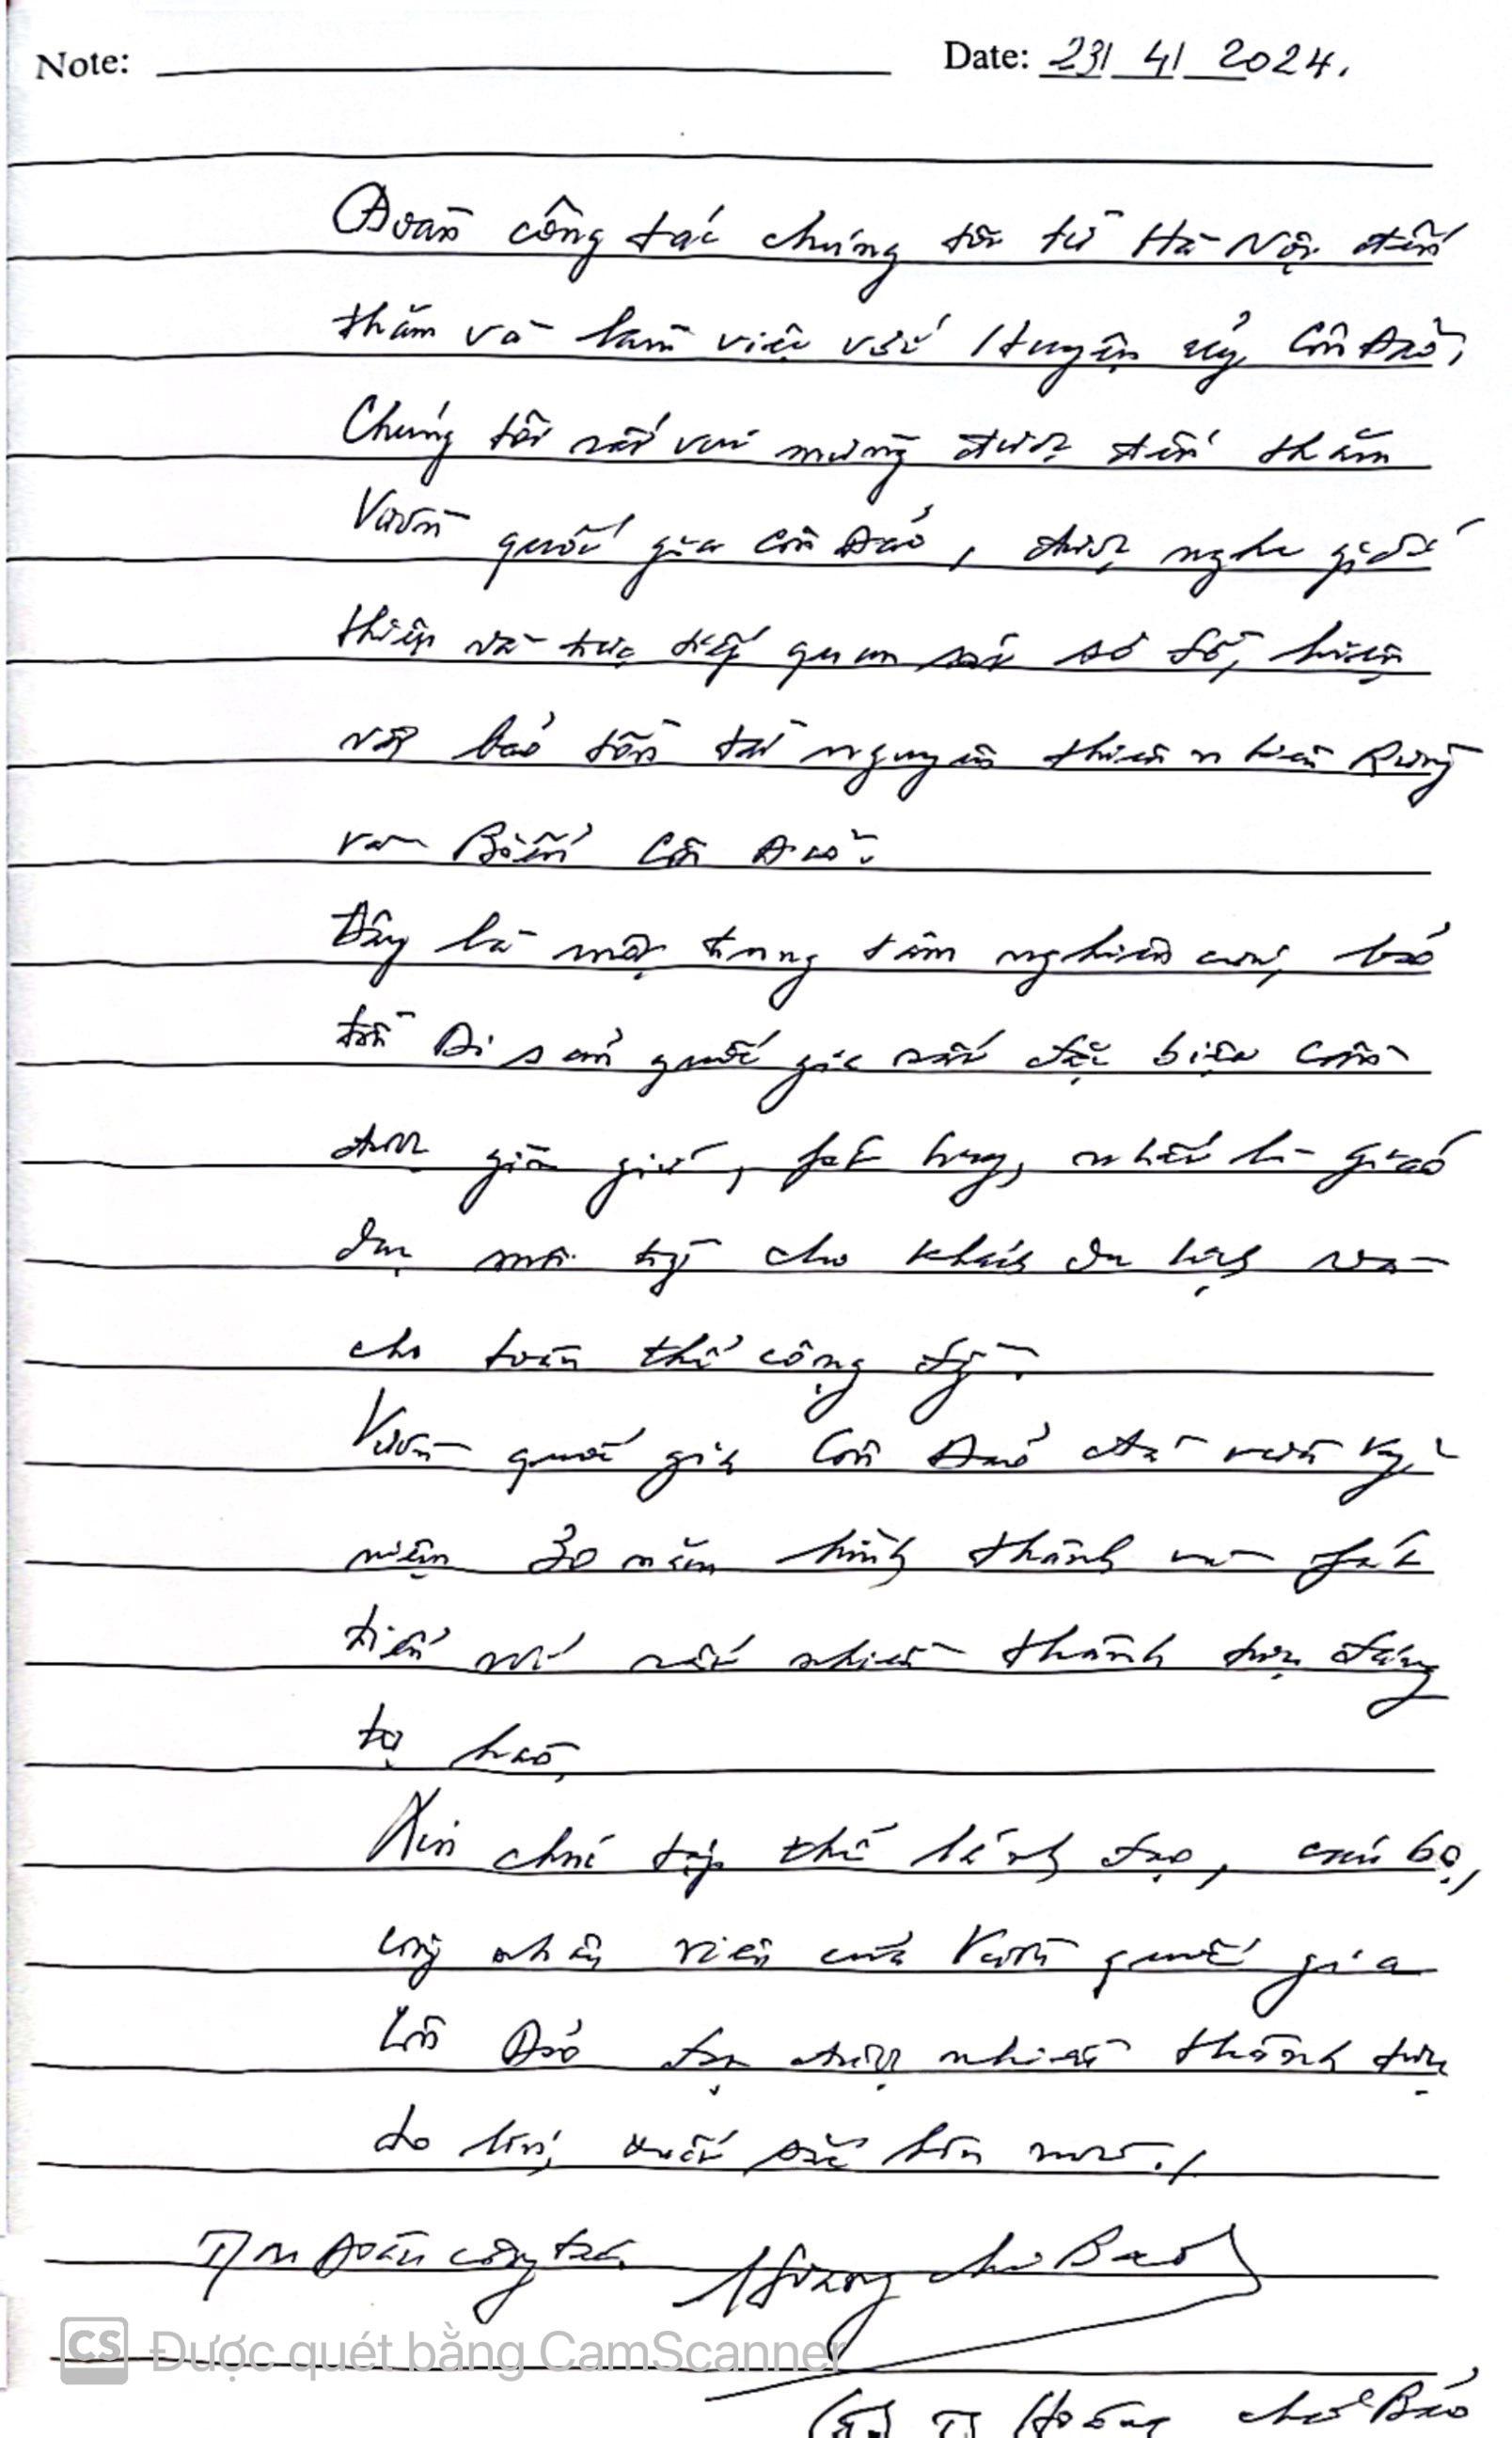 Note: Date: 23/ 4/ 2024.
Đoàn công tác chúng tôi từ Hà Nội đến
thăm và làm việc với Huyện ủy Côn Đảo,
Chúng tôi rất vui mừng được đến thăm
Vườn quốc gia Côn Đảo, được nghe giới
thiệu và trực tiếp quan sát sơ đồ, hiện
vật bảo tồn tài nguyên thiên nhiên Rừng
và Biển Côn Đảo.
Đây là một trung tâm nghiên cứu, bảo
tồn Di sản quốc gia rất đặc biệt cần
được gìn giữ, phát huy, nhất là giáo
dục môi trường cho khách du lịch và
cho toàn thể cộng đồng.
Vườn quốc gia Côn Đảo đã vừa kỷ
niệm 30 năm hình thành và phát
triển với rất nhiều thành tựu đáng
tự hào.
Xin chúc tập thể lãnh đạo, cán bộ,
công nhân viên của Vườn quốc gia
Côn Đảo đạt được nhiều thành tựu
to lớn, xuất sắc hơn nữa./
T/M Đoàn công tác
Hoàng Chí Bảo
CS Được quét bằng CamScanner
GS TS Hoàng Chí Bảo